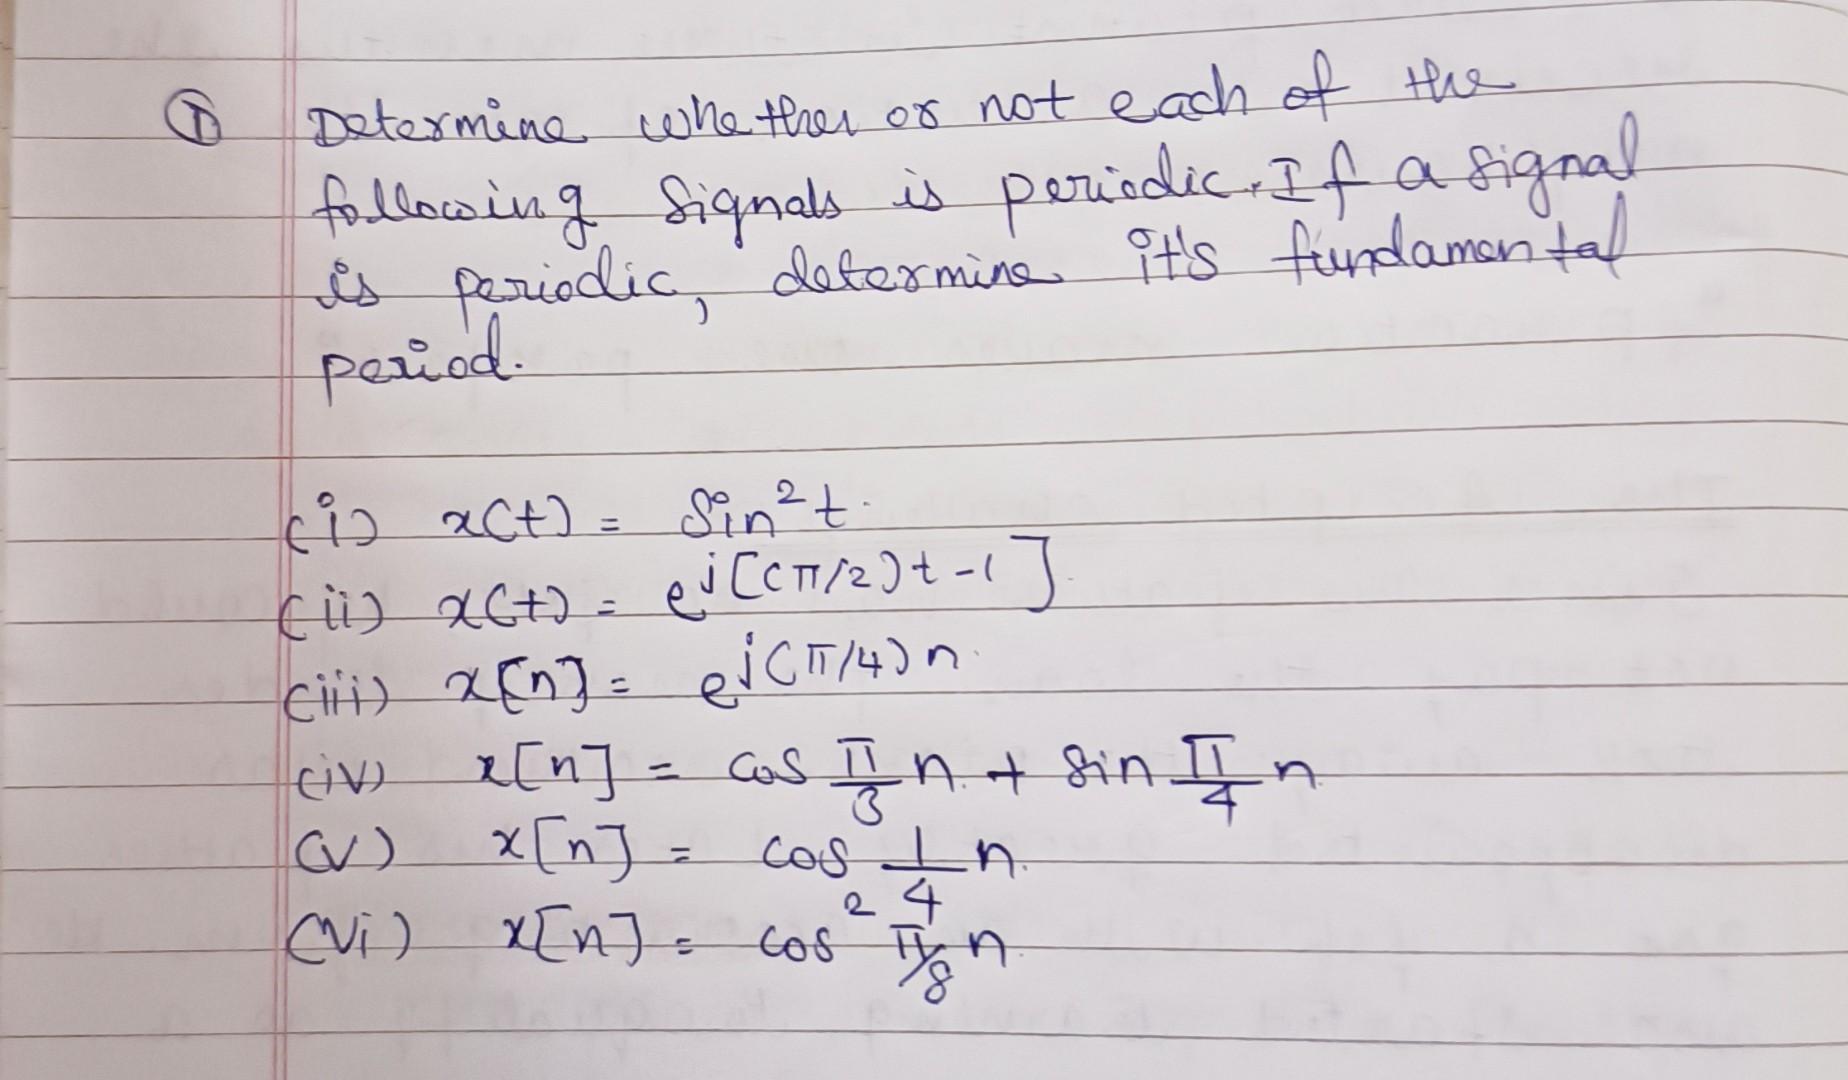 ① Determine whether or not each of the
following signals is periodic. If a signal
is periodic, determine it's fundamental
period.
(i) x(t) = Sin²t.
(ii) x(t) = e^j[(π/2)t-1].
(iii) x[n] = e^j(π/4)n.
(iv) x[n] = cos π/3 n. + sin π/4 n.
(v) x[n] = cos 1/4 n.
(vi) x[n] = cos² π/8 n.